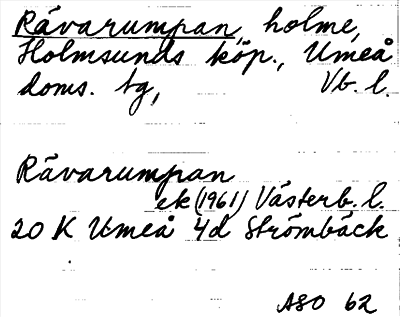 Rävarumpan, holme,
Holmsunds köp., Umeå
doms. tg, Vb. l.
Rävarumpan
ek (1961) Västerb. l.
20 K Umeå 4d Strömbäck
ASO 62